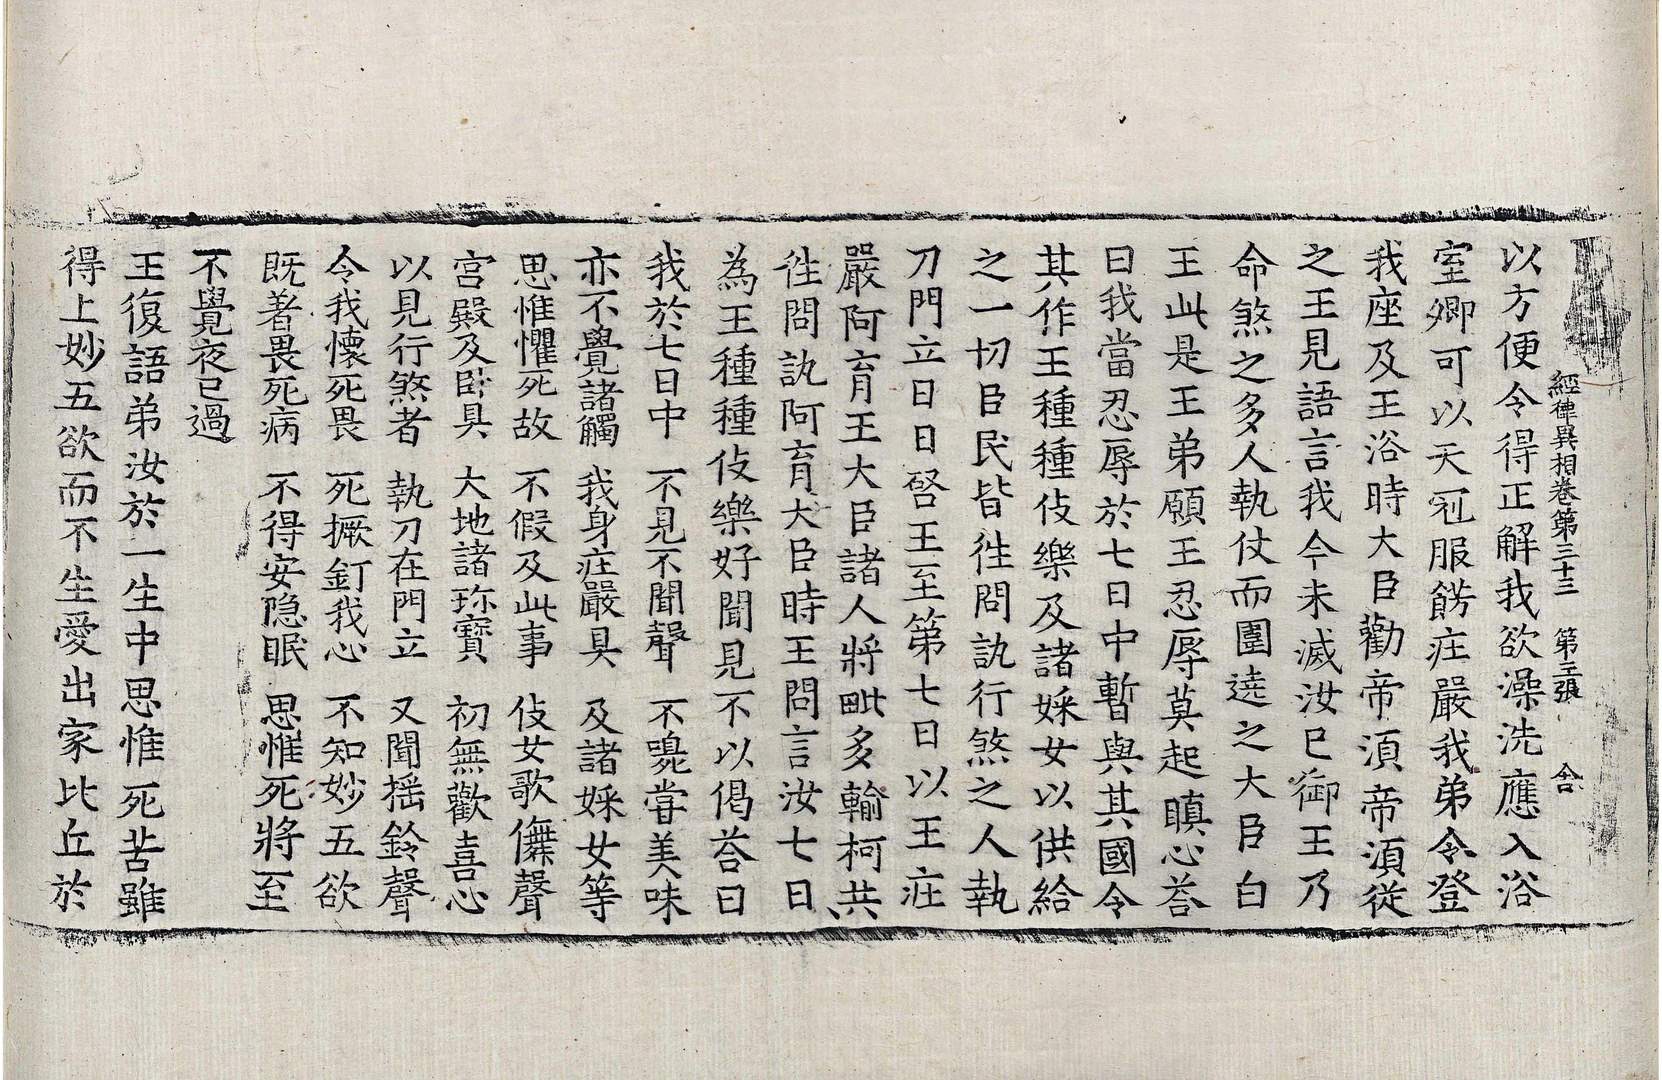 經律異相卷第三十三　第三張　合
以方便令得正解我欲澡洗應入浴
室卿可以天冠服餝㽵嚴我弟令登
我座及王浴時大臣勸帝湏帝湏從
之王見語言我今未滅汝已御王乃
命煞之多人執仗而圍遶之大臣白
王此是王弟願王忍辱莫起瞋心荅
曰我當忍辱於七日中暫與其國令
其作王種種伎樂及諸婇女以供給
之一切臣民皆徃問訊行煞之人執
刀門立日日啓王至第七日以王㽵
嚴阿育王大臣諸人將毗多輸柯共
徃問訊阿育大臣時王問言汝七日
為王種種伎樂好聞見不以偈荅曰
我於七日中　不見不聞聲　不嗅甞美味
亦不覺諸觸　我身㽵嚴具　及諸婇女等
思惟懼死故　不假及此事　伎女歌儛聲
宮殿及卧具　大地諸珎寶　初無歡喜心
以見行煞者　執刀在門立　又聞揺鈴聲
令我懷死畏　死橛釘我心　不知妙五欲
既著畏死病　不得安隐眠　思惟死將至
不覺夜已過
王復語弟汝於一生中思惟死苦雖
得上妙五欲而不生愛出家比丘於